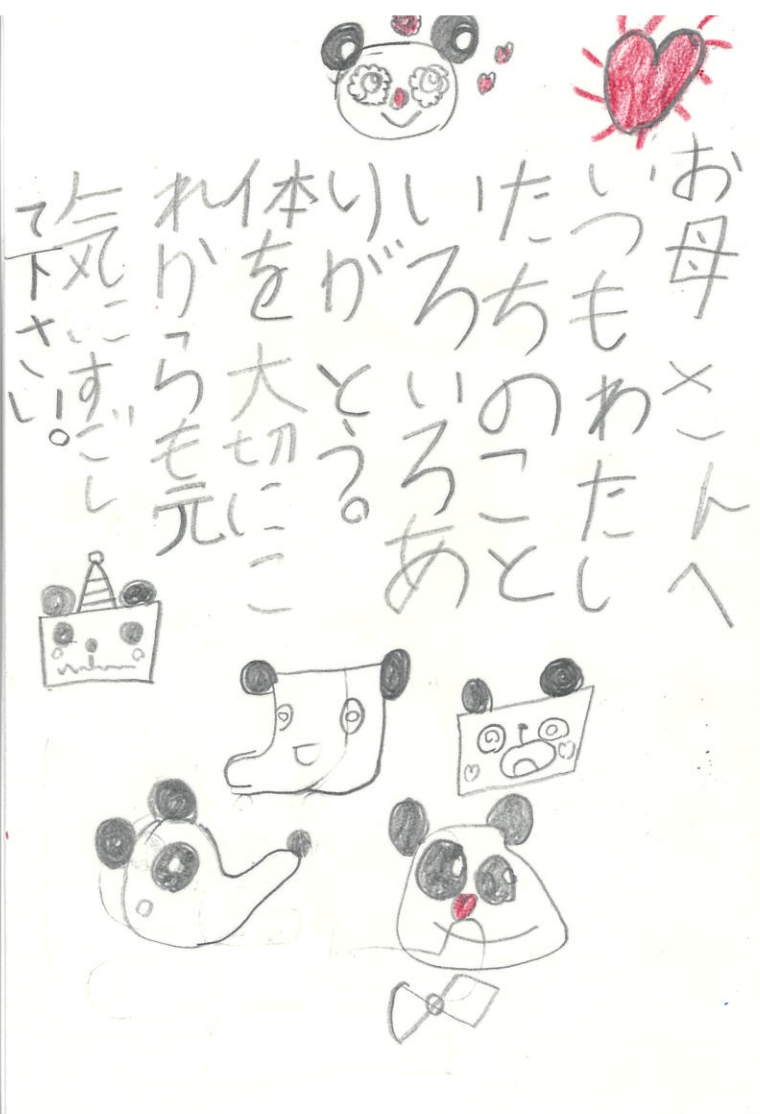 お母さんへ
いつもわたし
たちのこと
いろいろあ
りがとう。
体を大切にこ
れからも元
気にすごし
て下さい。